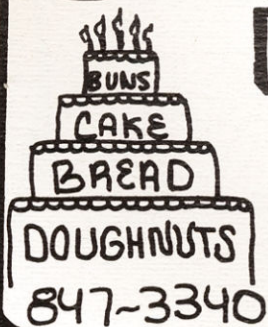 BUNS
CAKE
BREAD
DOUGHNUTS
847~3340